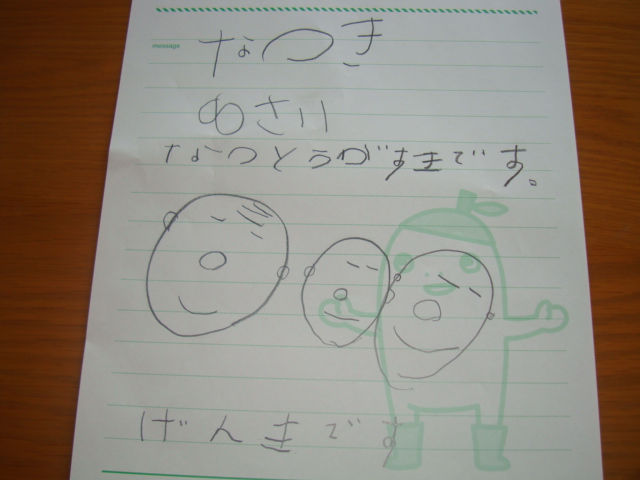 message
なつき
めさい
なつとうがすきです。
げんきです